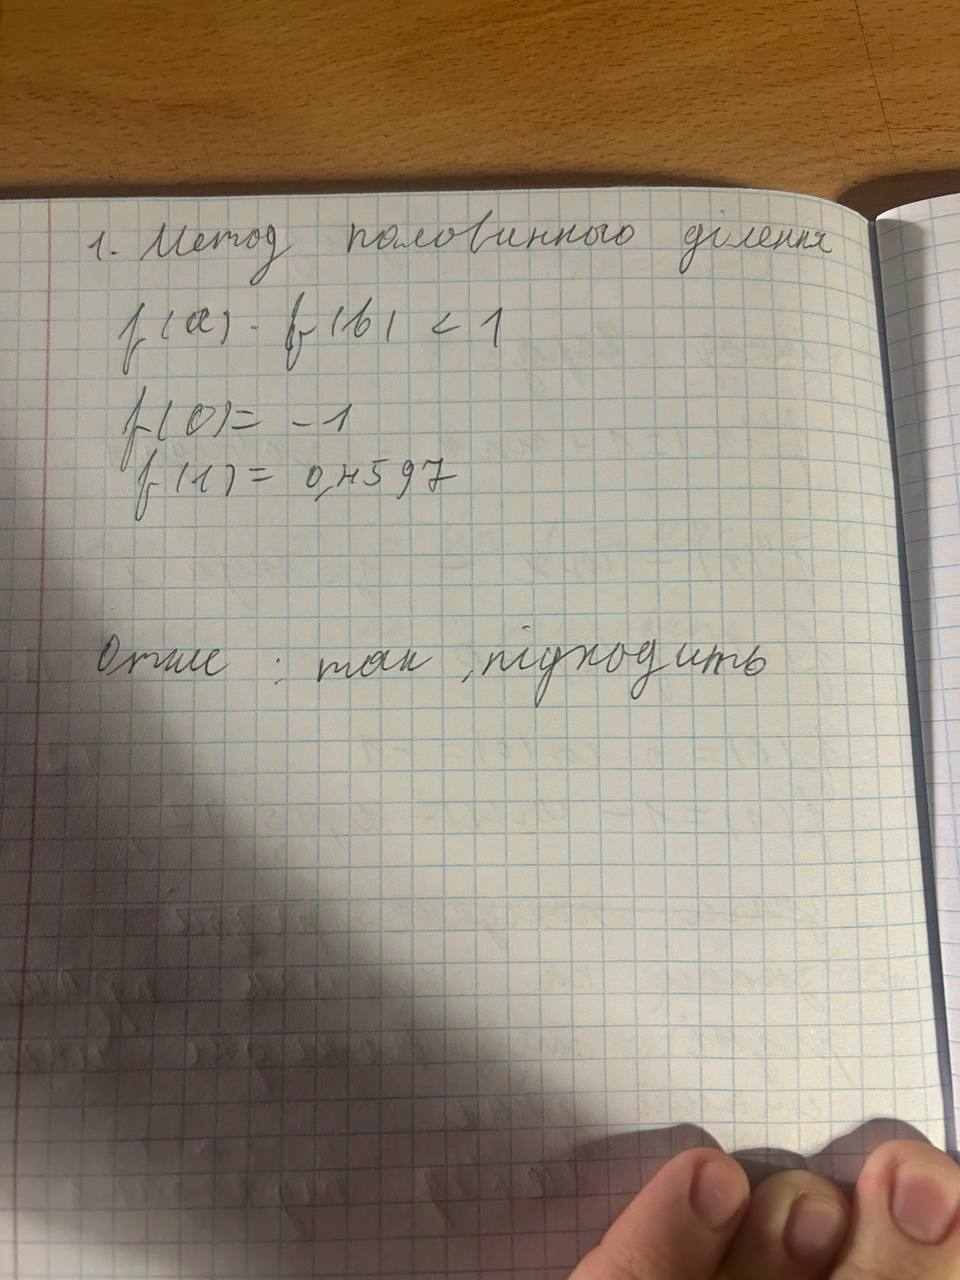 1. Метод половинного ділення
f(a) · f(b) < 1
f(0) = -1
f(1) = 0,4597
Отже : так, підходить